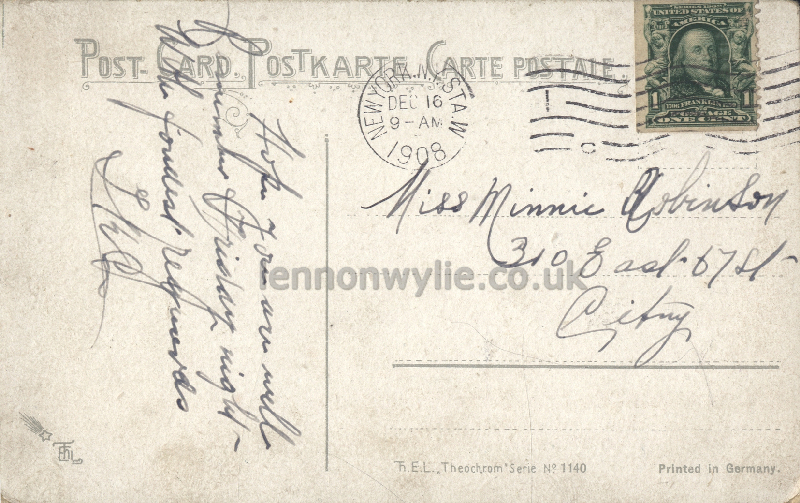 POST-CARD. POSTKARTE. CARTE POSTALE.
NEW YORK, N.Y. STA. W
DEC 16
9-AM
1908
1
C
SERIES 1902
UNITED STATES OF
AMERICA
1 FRANKLIN 1
POSTAGE
ONE CENT
Hope you are well
Remember Friday night-
With fondest regards
Miss Minnie Robinson
310 East 67 St-
City
lennonwylie.co.uk
T.H.E.L. „Theochrom" Serie Nº 1140
Printed in Germany.